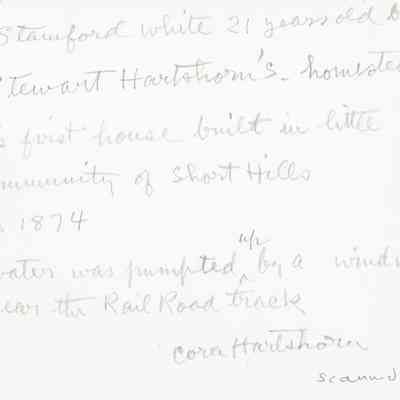 Stamford White 21 years old b
Stewart Hartshorn's. homstea
s first house built in little
mmunity of Short Hills
n 1874
water was pumpted up by a windm
ear the Rail Road track
Cora Hartshorn
Scanned